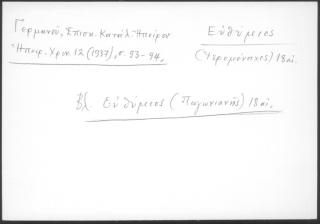 Γερμανού, Επισκ. Κατάλ. Ηπείρου
Ηπειρ. Χρον. 12 (1937), σ. 93-94.
Ευθύμιος
(Ιερομόναχος) 18 αι.
Βλ. Ευθύμιος (Παγωνιανής) 18 αι.